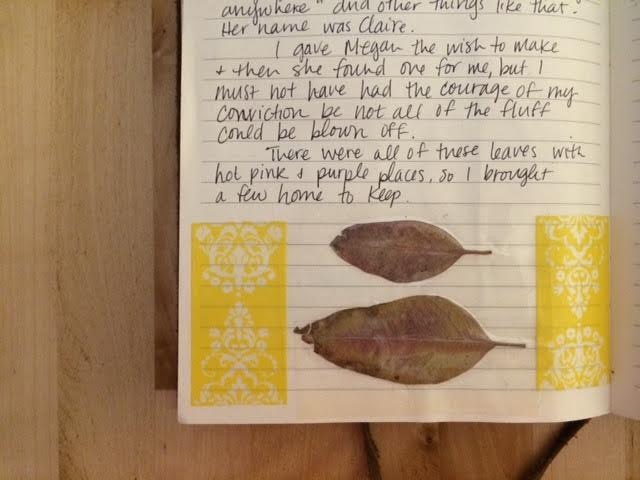 anywhere" and other things like that.
Her name was Claire.
I gave Megan the wish to make
+ then she found one for me, but I
must not have had the courage of my
conviction bc not all of the fluff
could be blown off.
There were all of these leaves with
hot pink + purple places, so I brought
a few home to keep.